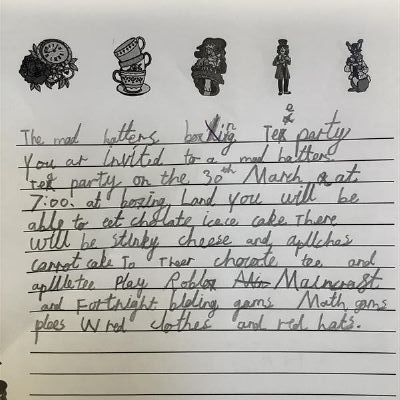 The mad hatters boxing Tea party
You ar invited to a mad hatters
tea party on the 30th March at
7:00. at boxing Land you will be
able to eet cholate iceice cake There
will be stinky cheese and apllchas
carrot cake To Treer chocote tea and
apllletee Play Roblox Maincraft
and Fortnight bloling gams Math gams
plees W red clothes and red hats.